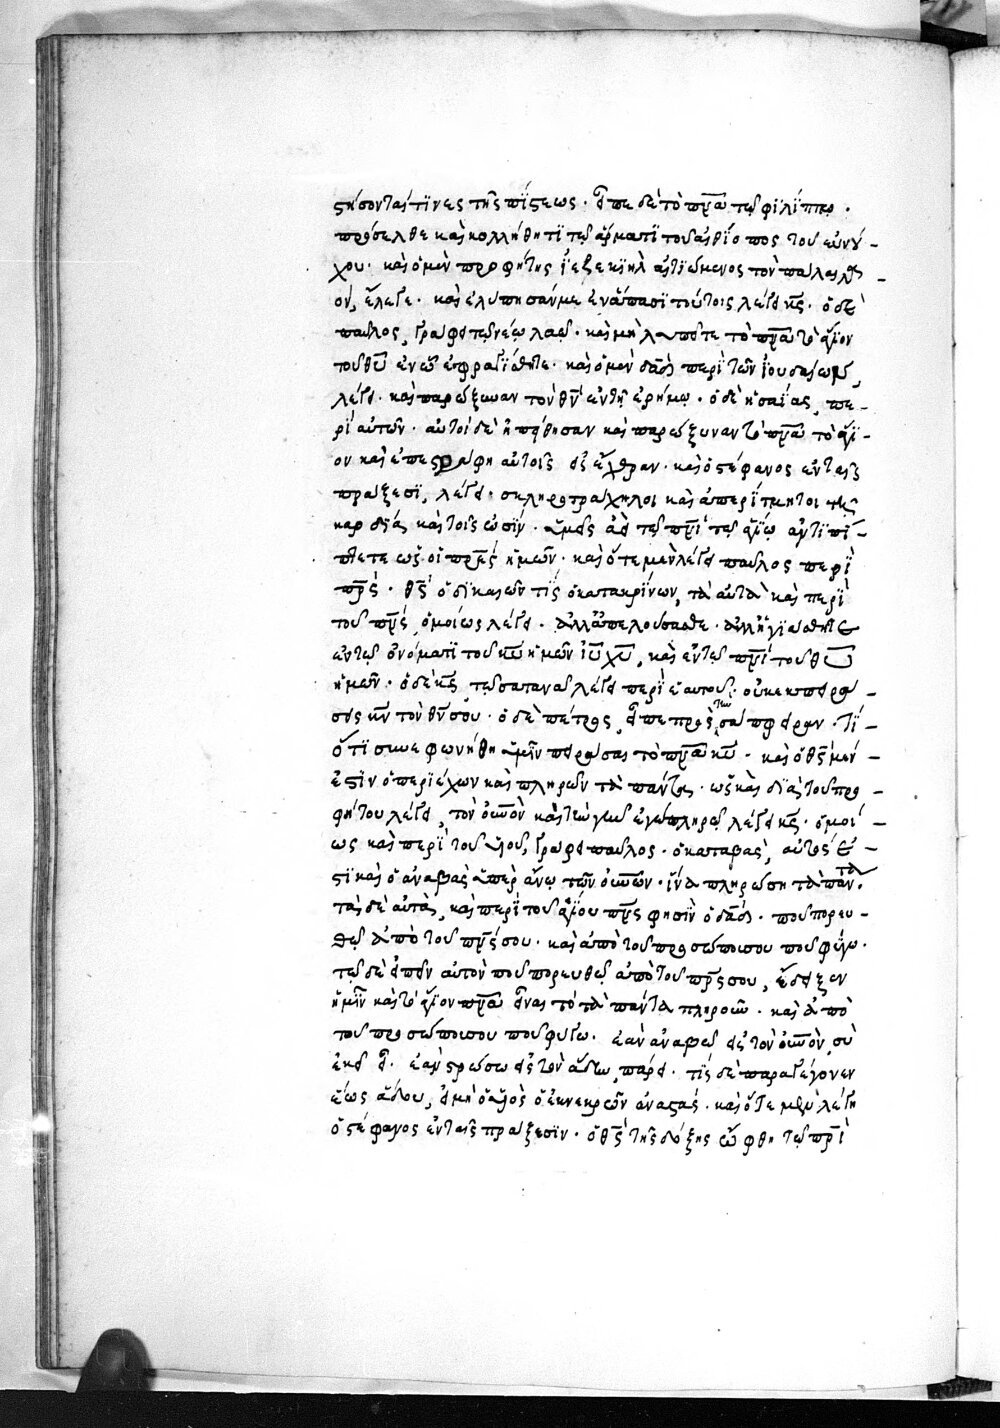 στήσονταί τινες τῆς πίστεως · εἶπε δὲ τὸ πνα τῷ φιλίππῳ ·
πρόσελθε καὶ κολλήθητι τῷ ἅρματι τοῦ αἰθίοπος τοῦ εὐνού-
χου · καὶ ὁ μὲν προφήτης ἰεζεκιὴλ αἰτιώμενος τὸν παλαιὸν λα-
ὸν, ἔλεγε · καὶ ἐλύπησάν με ἐν ἅπασι τούτοις λέγει κς · ὁ δὲ
παῦλος, γράφει τῷ νέῳ λαῷ · καὶ μὴ λυπεῖτε τὸ πνα τὸ ἅγιον
τοῦ θυ ἐν ᾧ ἐσφραγίσθητε · καὶ ὁ μὲν δαδ περὶ τῶν ἰουδαίων,
λέγει · καὶ παρώξυναν τὸν θν ἐν τῇ ἐρήμῳ · ὁ δὲ ἡσαΐας, πε-
ρὶ αὐτῶν · αὐτοὶ δὲ ἠπείθησαν καὶ παρώξυναν τὸ πνα τὸ ἅγι-
ον καὶ ἐπεστράφη αὐτοῖς εἰς ἔχθραν · καὶ ὁ στέφανος ἐν ταῖς
πράξεσι, λέγει · σκληροτράχηλοι καὶ ἀπερίτμητοι τῆς
καρδίας καὶ τοῖς ὠσίν · ὑμεῖς ἀεὶ τῷ πνι τῷ ἁγίῳ ἀντιπί-
πτετε ὡς οἱ πρες ἡμῶν · καὶ ὅτε μὲν λέγει παῦλος περὶ
πρς · θς ὁ δικαιῶν τίς ὁ κατακρίνων, τὰ αὐτὰ καὶ περὶ
τοῦ πνς ὁμοίως λέγει · ἀλλὰ ἀπελούσασθε · ἀλλ' ἡγιάσθητε
ἐν τῷ ὀνόματι τοῦ κυ ἡμῶν ιυ χυ, καὶ ἐν τῷ πνι τοῦ θυ
ἡμῶν · ὁ δὲ κς τῷ σατανᾷ λέγει περὶ ἑαυτοῦ · οὐκ ἐκπειρά-
σεις κν τὸν θν σου · ὁ δὲ πέτρος, εἶπε πρὸς τὴν σάπφειραν · τί
ὅτι συνεφωνήθη ὑμῖν πειράσαι τὸ πνα κυ · καὶ ὁ θς μέν
ἐστιν ὁ περιέχων καὶ πληρῶν τὰ πάντα · ὡς καὶ διὰ τοῦ προ-
φήτου λέγει, τὸν ουνον καὶ τὴν γῆν ἐγὼ πληρῶ λέγει κς · ὁμοί-
ως καὶ περὶ τοῦ υἱοῦ, γράφει παῦλος · ὁ καταβὰς, αὐτός ἐ-
στι καὶ ὁ ἀναβὰς ὑπεράνω τῶν ουνων · ἵνα πληρώσῃ τὰ πάντα ·
τὰς δὲ αὐτὰς, καὶ περὶ τοῦ ἁγίου πνς φησὶν ὁ δαδ · ποῦ πορευ-
θῶ ἀπὸ τοῦ πνς σου · καὶ ἀπὸ τοῦ προσώπου σου ποῦ φύγω ·
τῷ δὲ εἰπεῖν αὐτὸν ποῦ πορευθῶ ἀπὸ τοῦ πνς σου, ἔδειξεν
ἡμῖν καὶ τὸ ἅγιον πνα εἶναι τὸ τὰ πάντα πληροῦν · καὶ ἀπὸ
τοῦ προσώπου σου ποῦ φύγω · ἐὰν ἀναβῶ εἰς τὸν ουνον, σὺ
ἐκεῖ εἶ · ἐὰν στρώσω εἰς τὸν ἅδην, πάρει · τίς δὲ παραγέγονεν
ἕως ἅδου, εἰ μὴ ὁ υἱὸς ὁ ἐκ νεκρῶν ἀναστάς · καὶ ὅτε μὲν λέγῃ
ὁ στέφανος ἐν ταῖς πράξεσιν · ὁ θς τῆς δόξης ὤφθη τῷ πρι